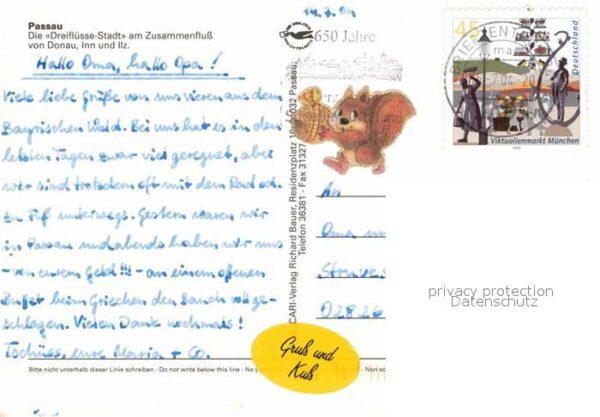 Passau
Die «Dreiflüsse-Stadt» am Zusammenfluß
von Donau, Inn und Ilz.
14.7.04
650 Jahre
45
Deutschland
BRIEFZENTRUM
Viktualienmarkt München
Hallo Oma, hallo Opa!
Viele liebe Grüße von uns vieren aus dem
Bayrischen Wald. Bei uns hat es in den
letzten Tagen zwar viel geregnet, aber
wir sind trotzdem oft mit dem Rad od.
zu Fuß unterwegs. Gestern waren wir
in Passau und abends haben wir uns
- von eurem Geld!!! - an einem offenen
Buffet beim Griechen den Bauch vollge-
schlagen. Vielen Dank nochmals!
Tschüss, eure Maria + Co.
CARI-Verlag Richard Bauer, Residenzplatz 94032 Passau,
Telefon 36381 - Fax 31327
An
Oma
Struves
02826
privacy protection
Datenschutz
Gruß und
Kuß
Bitte nicht unterhalb dieser Linie schreiben - Do not write below this line - Ne